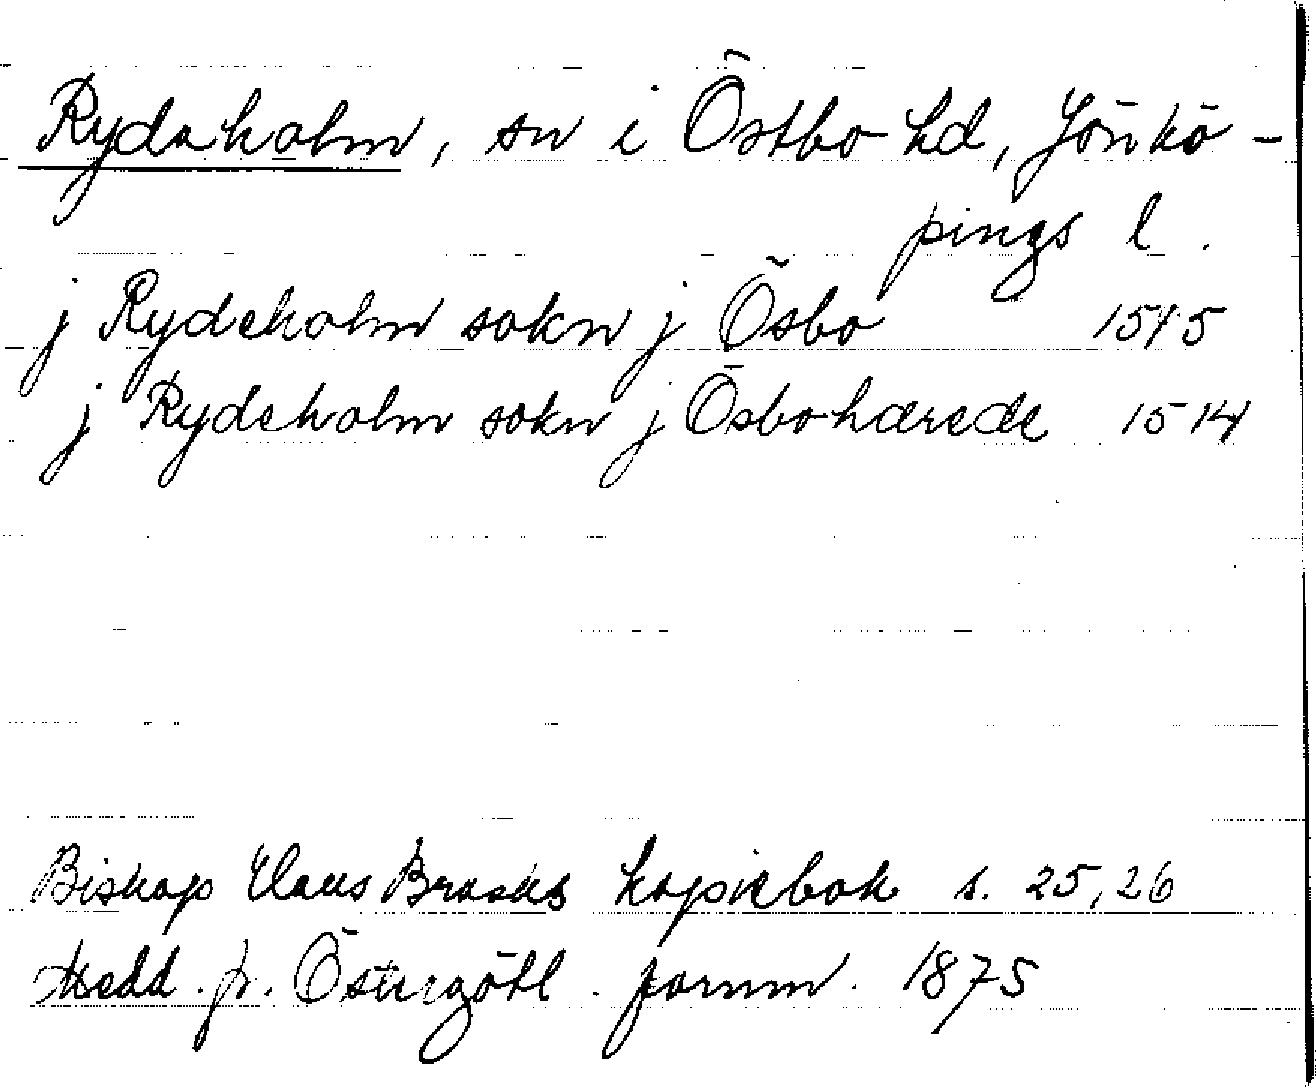 Rydaholm, sn i Östbo hd, Jönkö-
pings l.
j Rydeholm sokn j Ösbo 1515
j Rydeholm sokn j Ösbohærede 1514
Biskop Claus Brasks kopiebok s. 25, 26
Medd. fr. Östergötl. fornm. 1875